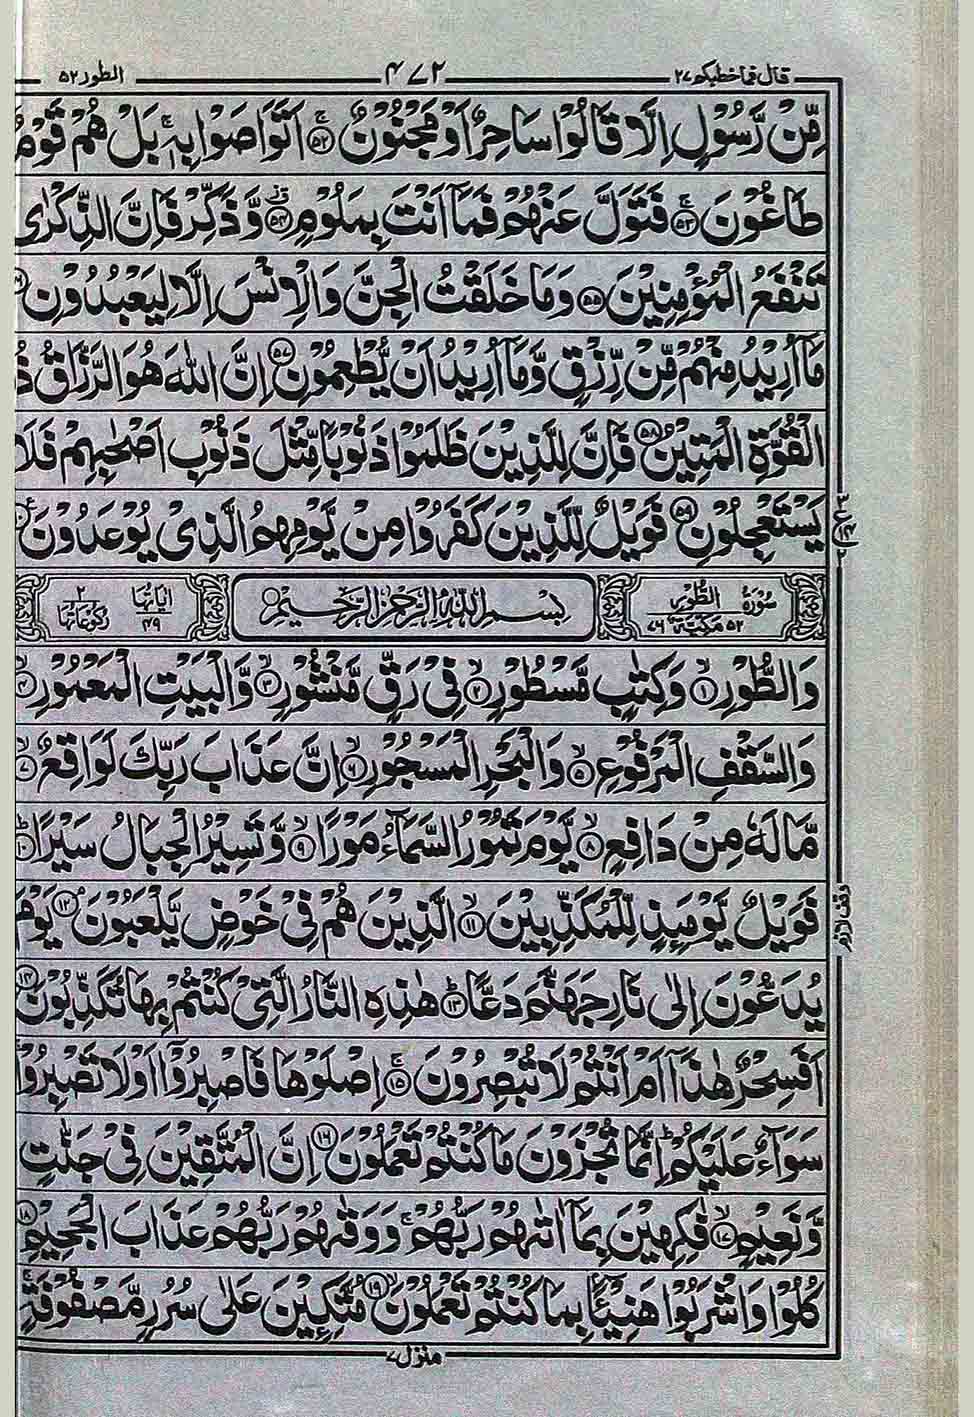 قال فما خطبكم ٢٧
٤٧٢
الطور ٥٢
مِّنْ رَّسُوْلٍ اِلَّا قَالُوْا سَاحِرٌ اَوْ مَجْنُوْنٌ ۚ‏﴿۵۲﴾ اَتَوَاصَوْا بِهٖ ۚ بَلْ هُمْ قَوْمٌ
طَاغُوْنَ ۚ‏﴿۵۳﴾ فَتَوَلَّ عَنْهُمْ فَمَاۤ اَنْتَ بِمَلُوْمٍ ‏﴿۵۴﴾ وَّ ذَكِّرْ فَاِنَّ الذِّكْرٰى
تَنْفَعُ الْمُؤْمِنِيْنَ ‏﴿۵۵﴾ وَمَا خَلَقْتُ الْجِنَّ وَالْاِنْسَ اِلَّا لِيَعْبُدُوْنِ
مَاۤ اُرِيْدُ مِنْهُمْ مِّنْ رِّزْقٍ وَّمَاۤ اُرِيْدُ اَنْ يُّطْعِمُوْنِ ‏﴿۵۷﴾ اِنَّ اللّٰهَ هُوَ الرَّزَّاقُ ذُ
الْقُوَّةِ الْمَتِيْنُ ‏﴿۵۸﴾ فَاِنَّ لِلَّذِيْنَ ظَلَمُوْا ذَنُوْبًا مِّثْلَ ذَنُوْبِ اَصْحٰبِهِمْ فَلَا
يَسْتَعْجِلُوْنِ ‏﴿۵۹﴾ فَوَيْلٌ لِّلَّذِيْنَ كَفَرُوْا مِنْ يَّوْمِهِمُ الَّذِىْ يُوْعَدُوْنَ
سُوْرَةُ الطُّوْرِ ٥٢ مَكِّيَّةٌ ٧٦
بِسْمِ اللّٰهِ الرَّحْمٰنِ الرَّحِيْمِ
اٰيَاتُهَا ٤٩
رُكُوْعَاتُهَا ٢
وَالطُّوْرِ ۙ‏﴿۱﴾ وَكِتٰبٍ مَّسْطُوْرٍ ۙ‏﴿۲﴾ فِىْ رَقٍّ مَّنْشُوْرٍ ۙ‏﴿۳﴾ وَّالْبَيْتِ الْمَعْمُوْرِ ۙ‏﴿۴﴾
وَالسَّقْفِ الْمَرْفُوْعِ ۙ‏﴿۵﴾ وَالْبَحْرِ الْمَسْجُوْرِ ۙ‏﴿۶﴾ اِنَّ عَذَابَ رَبِّكَ لَوَاقِعٌ ۙ‏﴿۷﴾
مَّا لَهٗ مِنْ دَافِعٍ ۙ‏﴿۸﴾ يَّوْمَ تَمُوْرُ السَّمَآءُ مَوْرًا ۙ‏﴿۹﴾ وَّتَسِيْرُ الْجِبَالُ سَيْرًا ؕ‏﴿۱۰﴾
فَوَيْلٌ يَّوْمَئِذٍ لِّلْمُكَذِّبِيْنَ ۙ‏﴿۱۱﴾ الَّذِيْنَ هُمْ فِىْ خَوْضٍ يَّلْعَبُوْنَ ‏﴿۱۲﴾ يَوْمَ
يُدَعُّوْنَ اِلٰى نَارِ جَهَنَّمَ دَعًّا ؕ‏﴿۱۳﴾ هٰذِهِ النَّارُ الَّتِىْ كُنْتُمْ بِهَا تُكَذِّبُوْنَ ‏﴿۱۴﴾
اَفَسِحْرٌ هٰذَاۤ اَمْ اَنْتُمْ لَا تُبْصِرُوْنَ ۚ‏﴿۱۵﴾ اِصْلَوْهَا فَاصْبِرُوْۤا اَوْ لَا تَصْبِرُوْا
سَوَآءٌ عَلَيْكُمْ ؕ اِنَّمَا تُجْزَوْنَ مَا كُنْتُمْ تَعْمَلُوْنَ ‏﴿۱۶﴾ اِنَّ الْمُتَّقِيْنَ فِىْ جَنّٰتٍ
وَّنَعِيْمٍ ۙ‏﴿۱۷﴾ فٰكِهِيْنَ بِمَاۤ اٰتٰىهُمْ رَبُّهُمْ ۚ وَوَقٰىهُمْ رَبُّهُمْ عَذَابَ الْجَحِيْمِ ‏﴿۱۸﴾
كُلُوْا وَاشْرَبُوْا هَنِيْٓـًٔاۢ بِمَا كُنْتُمْ تَعْمَلُوْنَ ۙ‏﴿۱۹﴾ مُتَّكِـِٕيْنَ عَلٰى سُرُرٍ مَّصْفُوْفَةٍ ۚ
منزل ٧